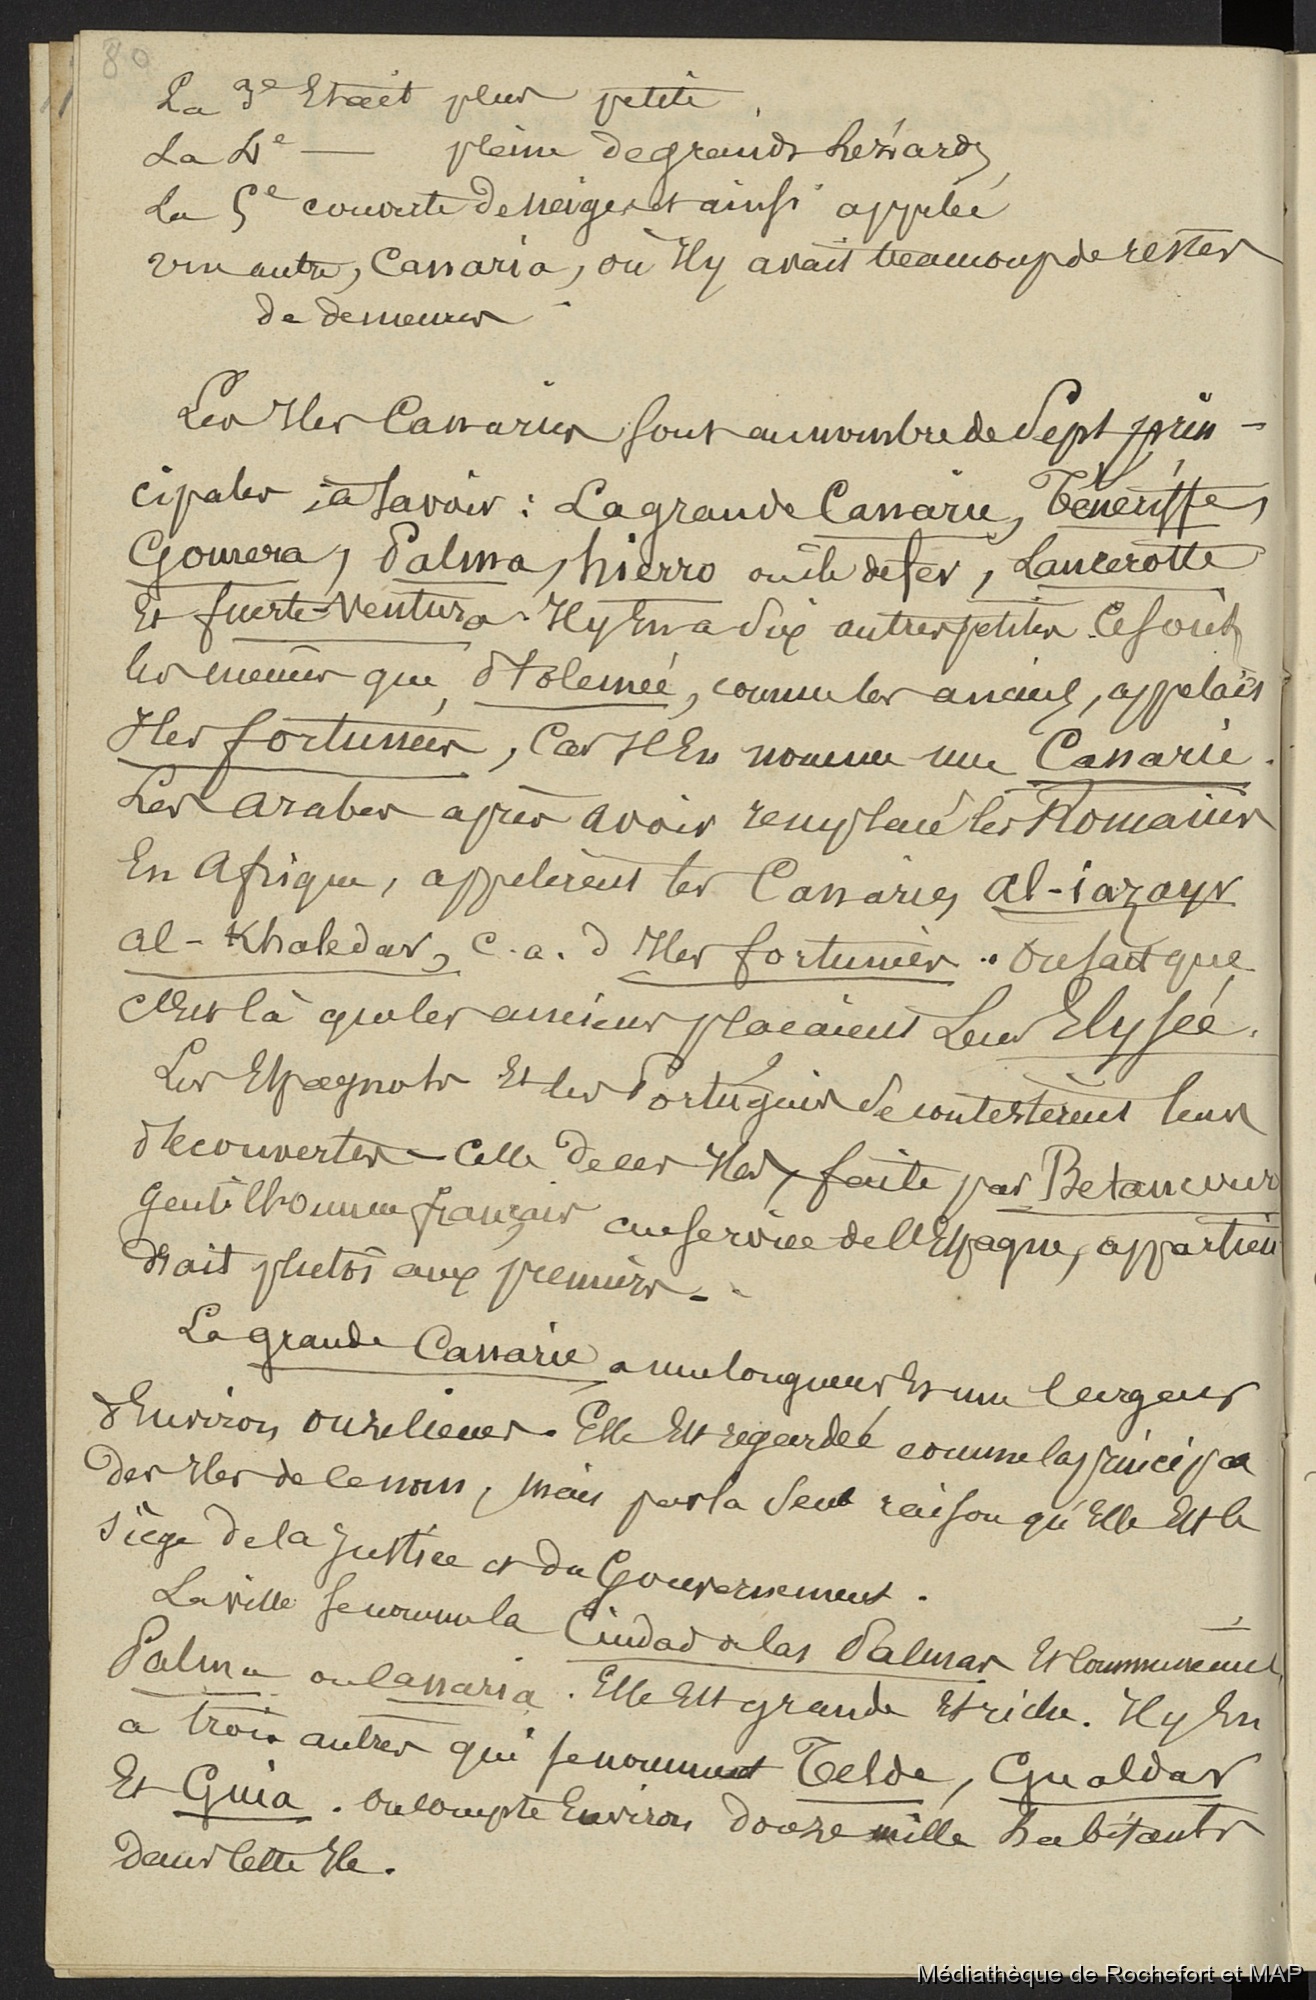 80
La 3e Etait plus petite
La 4e — pleine de grands Lézards,
La 5e couverte de neiges et ainsi appelée
une autre, Canaria, où Il y avait beaucoup de restes
de demeures
Les Iles Canaries sont au nombre de Sept prin-
cipales, à savoir : La grande Canarie, Ténériffe,
Gomera, Palma, hierro ou île de fer, Lancerotte
Et fuerte-Ventura. Il y En a Six autres petites. Ce sont
les mêmes que Ptolemée, comme les anciens, appelait
Iles fortunées, Car Il En nomme une Canarie.
Les Arabes après avoir remplacé les Romains
En Afrique, appelèrent les Canaries al-iazayr
al-Khaledar, c.a.d Iles fortunées. On sait que
c'Est là que les anciens plaçaient Leur Elysée.
Les Espagnols Et les Portugais se contestèrent leurs
découvertes — Celle de ces Iles, faite par Betancour
Gentilhomme français au service de l'Espagne, appartien
drait plutôt aux premiers.
La grande Canarie a une longueur Et une largeur
d'Environ onze lieues. Elle Est regardée comme la principa
des Iles de ce nom, mais par la seul raison qu'Elle Est le
siège de la Justice et du Gouvernement.
La ville se nomme la Ciudad de las Palmas Et Communément
Palma ou Canaria. Elle Est grande Et riche. Il y En
a trois autres qui se nomment Telde, Gualdar
Et Guia. On compte Environ douze mille habitants
dans Cette Ile.
Médiathèque de Rochefort et MAP